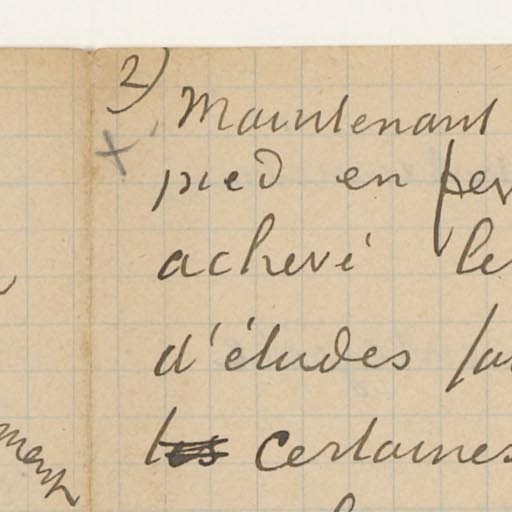 2) Maintenant
pied en per
achevé le
d'études
certaines
ment